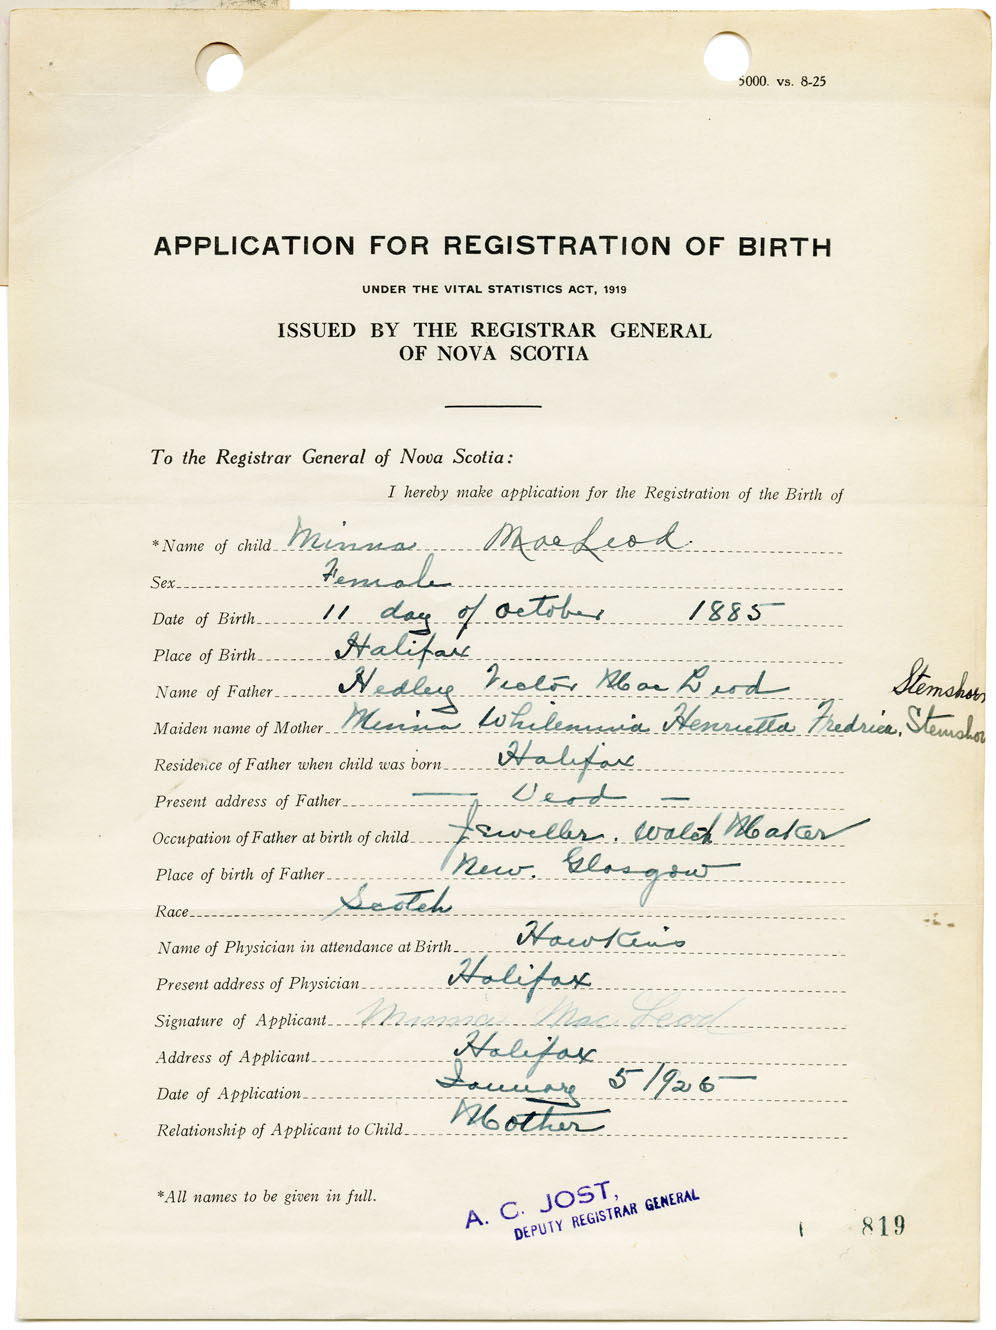 5000. vs. 8-25
APPLICATION FOR REGISTRATION OF BIRTH
UNDER THE VITAL STATISTICS ACT, 1919
ISSUED BY THE REGISTRAR GENERAL
OF NOVA SCOTIA
To the Registrar General of Nova Scotia:
I hereby make application for the Registration of the Birth of
*Name of child Minna MacLeod.
Sex Female
Date of Birth 11 day of october 1885
Place of Birth Halifax
Name of Father Hedley Victor MacLeod Stemshorn
Maiden name of Mother Minna Whilemina Henrietta Fredrica, Stemshor
Residence of Father when child was born Halifax
Present address of Father — Dead —
Occupation of Father at birth of child Jeweller. Watch Maker
Place of birth of Father New. Glasgow
Race Scotch
Name of Physician in attendance at Birth Hawkins
Present address of Physician Halifax
Signature of Applicant Minna MacLeod
Address of Applicant Halifax
Date of Application January 5/926
Relationship of Applicant to Child Mother
*All names to be given in full.
A. C. JOST,
DEPUTY REGISTRAR GENERAL
819